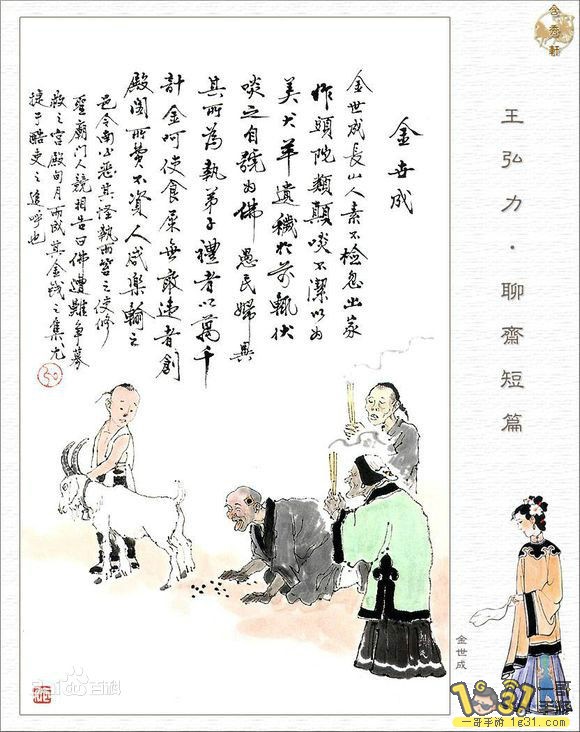 金世成
金世成長山人素不檢忽出家
作頭陀類顛啖不潔以為
美犬羊遺穢於前輒伏
啖之自號為佛愚民婦異
其所為執弟子禮者以萬千
計金呵使食屎無敢違者創
殿閣所費不資人咸樂輸之
邑令南公惡其怪執而笞之使修
聖廟門人競相告曰佛遭難爭募
救之宮殿旬月而成其金錢之集尤
捷于酷吏之追呼也
王弘力·聊齋短篇
金世成
Bai百科
1g31
一哥手游
一哥手游 1g31.com